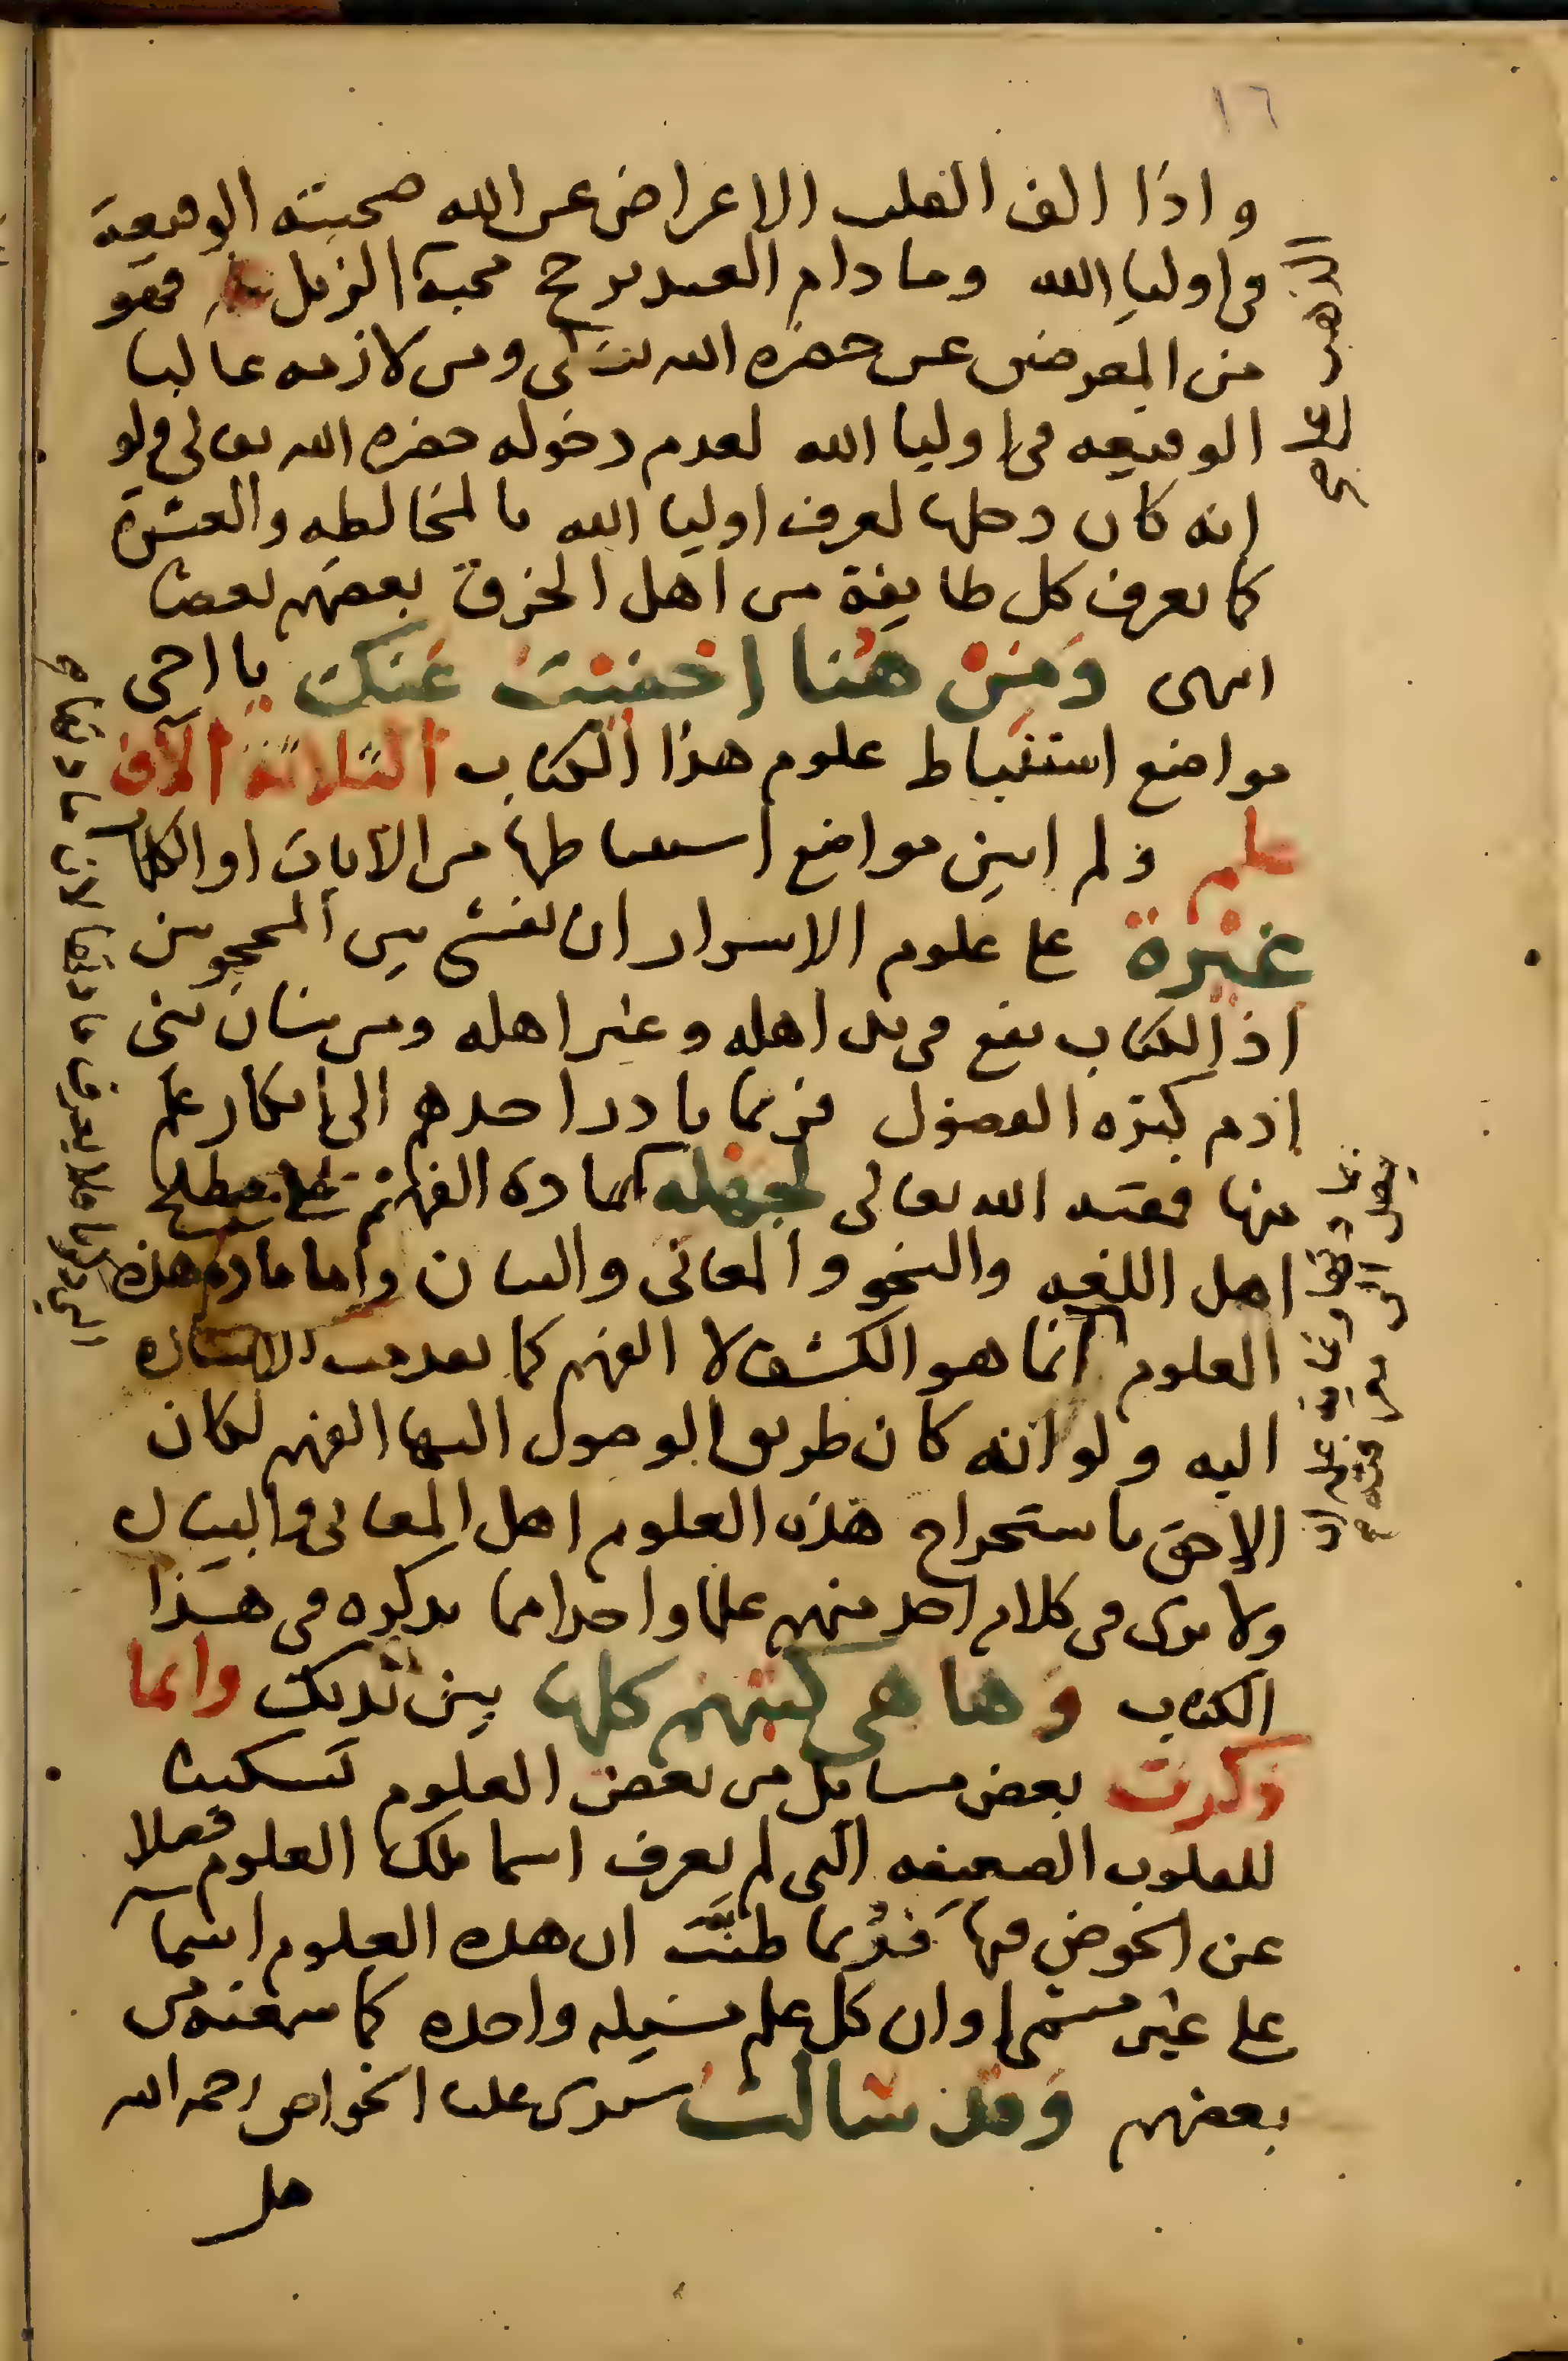 ١٦
واذا الف القلب الاعراض عن الله صحبته الوقيعة
فى اوليا الله وما دام العبد يرجح محبة الزبل فهو
من المعرضين عن حضره الله تعالى ومن لازمه غالبا
الوقيعه فى اوليا الله لعدم دخوله حضره الله تعالى ولو
انه كان دخلها لعرف اوليا الله بالمخالطه والعشرة
كما يعرف كل طايفة من اهل الخرق بعضهم بعضا
انتهى ومن هنا اخفيت عنك يا اخى
مواضع استنباط علوم هذا الكتاب الثلاثة الآف
علم ولم ابين مواضع استنباطها من الآيات او الكلام
غيرة على علوم الاسرار ان تفشى بين المحجوبين
اذ الكتاب يقع فى يد اهله وغير اهله ومن شان بنى
ادم كثره الفضول فربما بادر احدهم الى انكار علم
منها فمقته الله تعالى لجهله كمادة الفهم على مصطلح
اهل اللغه والنحو والمعانى والبيان واما مادة هذه
العلوم انما هو الكشف لا الفهم كما تقدمت الاشاره
اليه ولو انه كان طريق الوصول اليها الفهم لكان
الاحق باستخراج هذه العلوم اهل المعانى والبيان
ولا نرى فى كلام احد منهم علما واحدا مما نذكره فى هذا
الكتاب وها هى كتبهم كلها بين يديك وانما
ذكرت بعض مسايل من بعض العلوم تسكينا
للقلوب الضعيفه التى لم يعرف اسما تلك العلوم فضلا
عن الخوض فيها فربما ظنت ان هذه العلوم اسما
على غير مسمى او ان كل علم مسيله واحده كما سمعته من
بعضهم وقد سالت سيدى على الخواص رحمه الله
هل